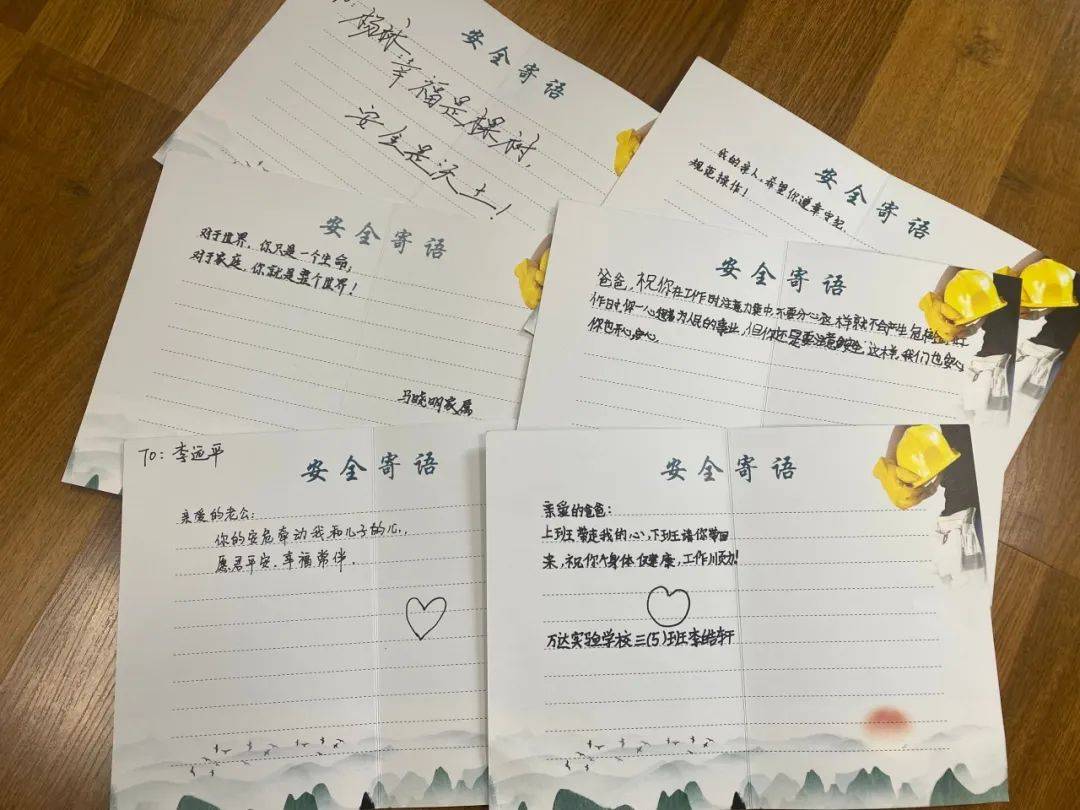 安全寄语
杨林:
幸福是棵树,
安全是沃土!
安全寄语
我的亲人,希望你遵章守纪,
规范操作!
安全寄语
对于世界,你只是一个生命;
对于家庭,你就是整个世界!
马晓明家属
安全寄语
爸爸,祝你在工作时注意力集中,不要分心,这样就不会产生危
作时,你一心想着为人民的事业,但你还是要注意安全,这样,我们也安心
你也开心安心。
TO:李远平
安全寄语
亲爱的老公:
你的安危牵动我和儿子的心,
愿君平安、幸福常伴。
安全寄语
亲爱的爸爸:
上班带走我的心,下班请你带回
来,祝你身体健康,工作顺利!
万达实验学校三(5)班李皓轩